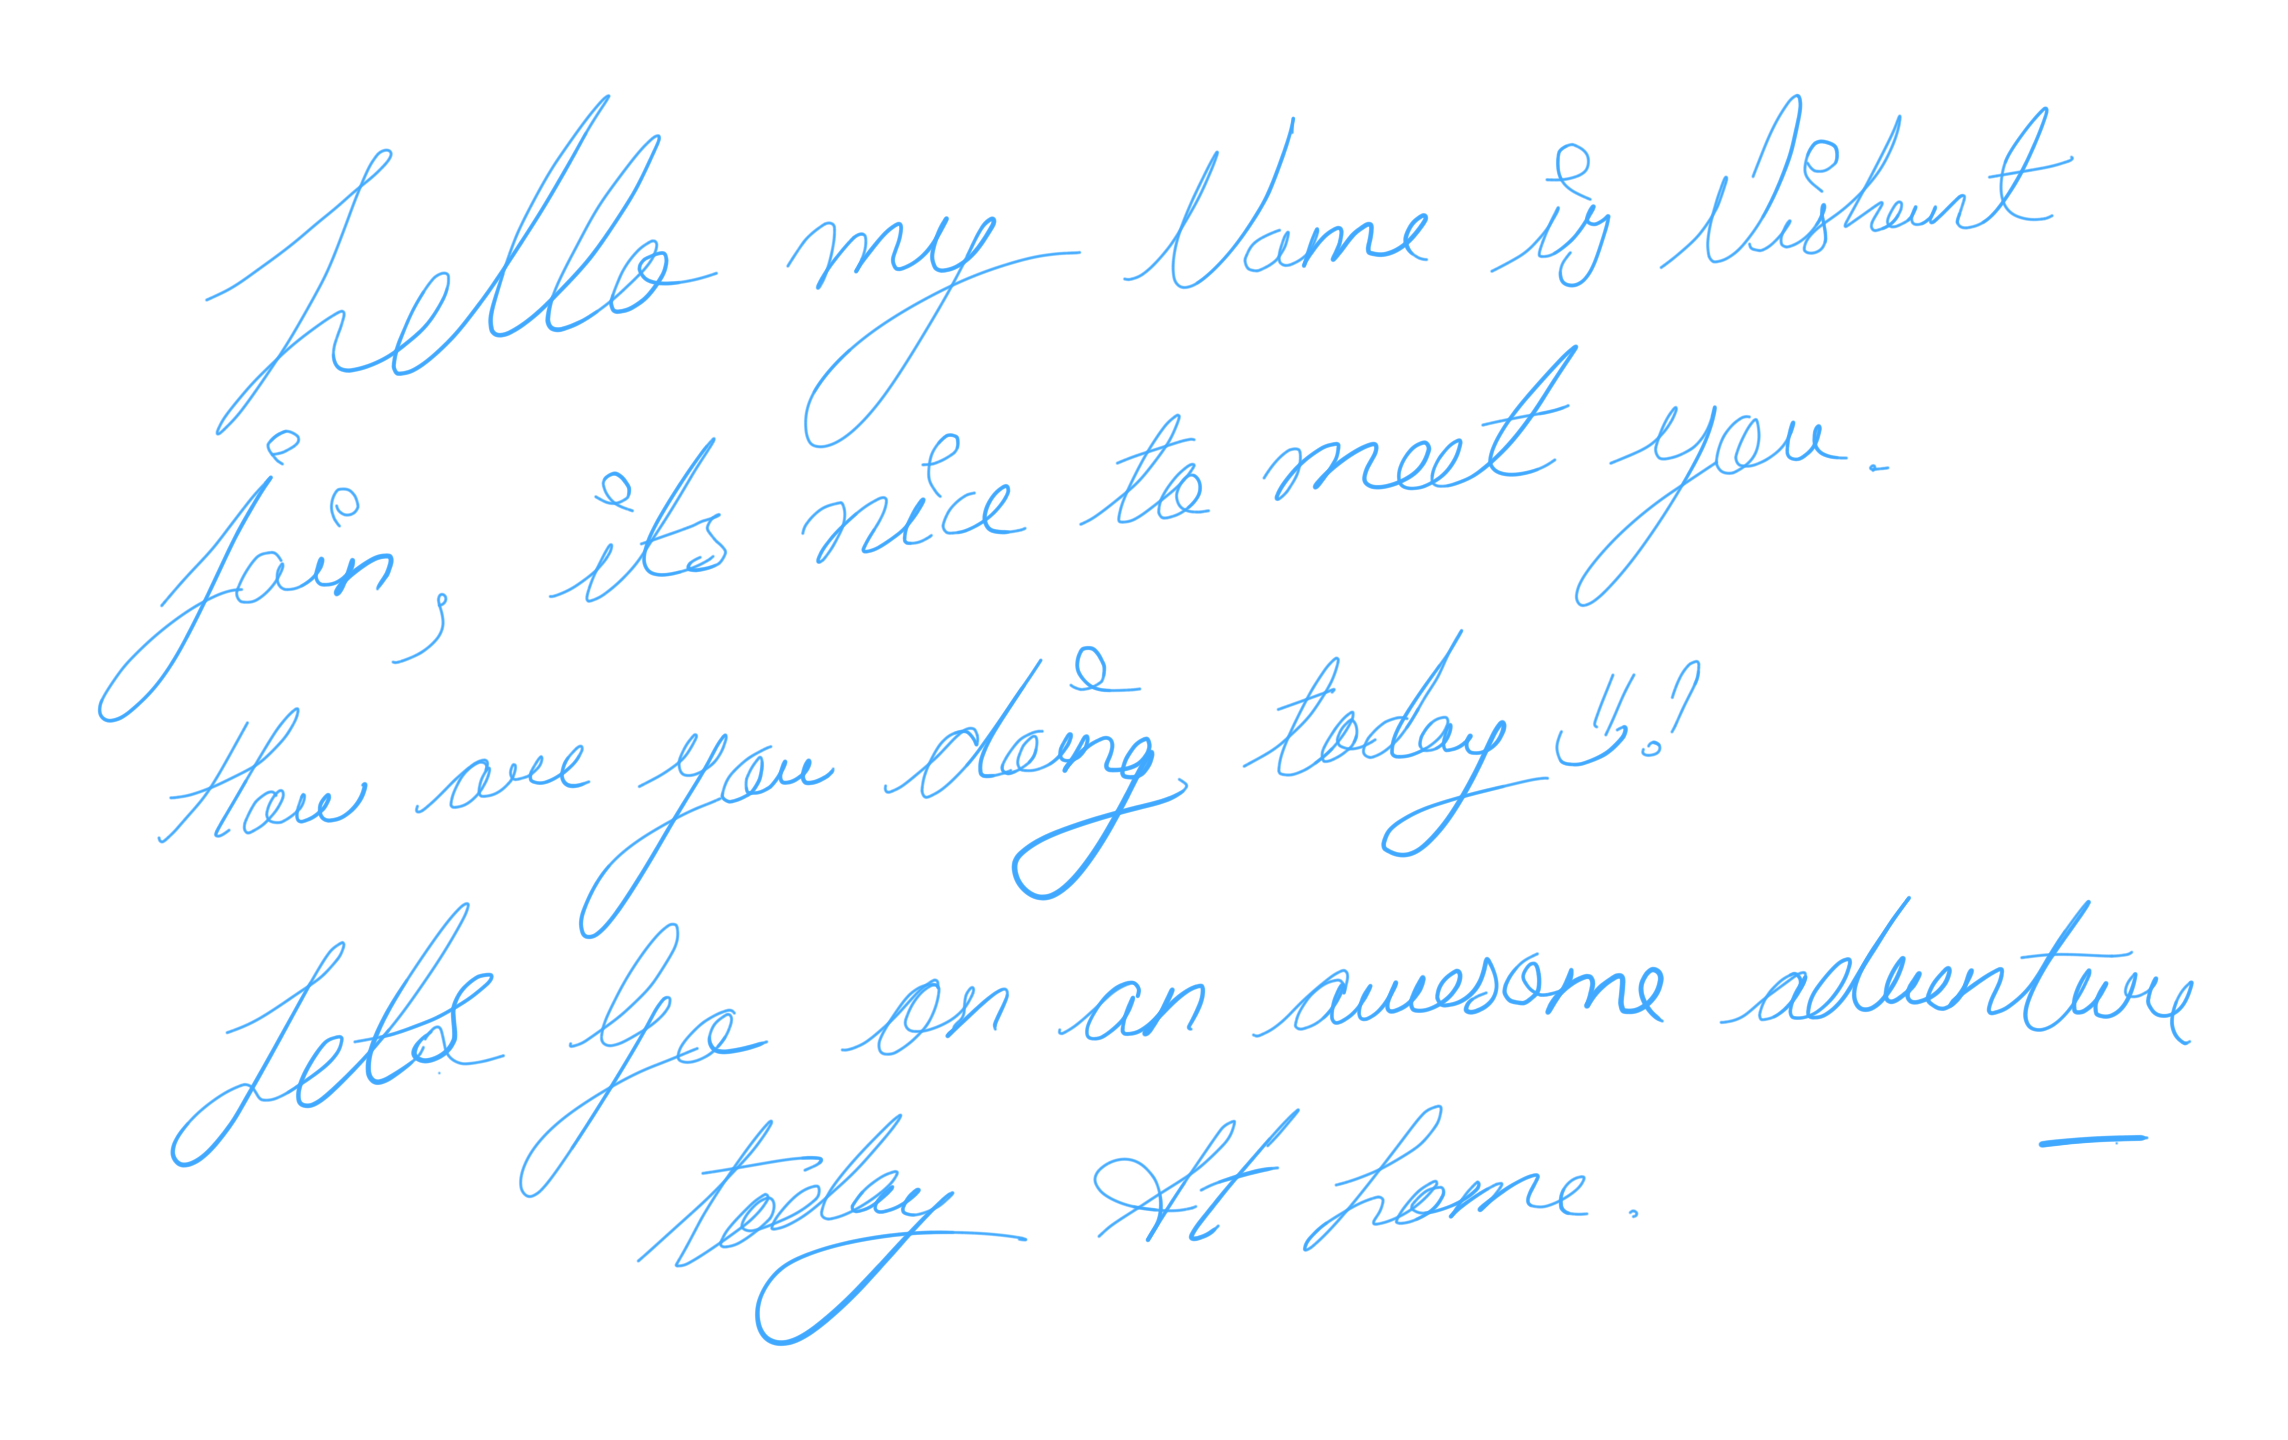 Hello my Name is Nishant
jain, its nice to meet you.
How are you doing today !!?
Lets go on an awesome adventure
today At home.